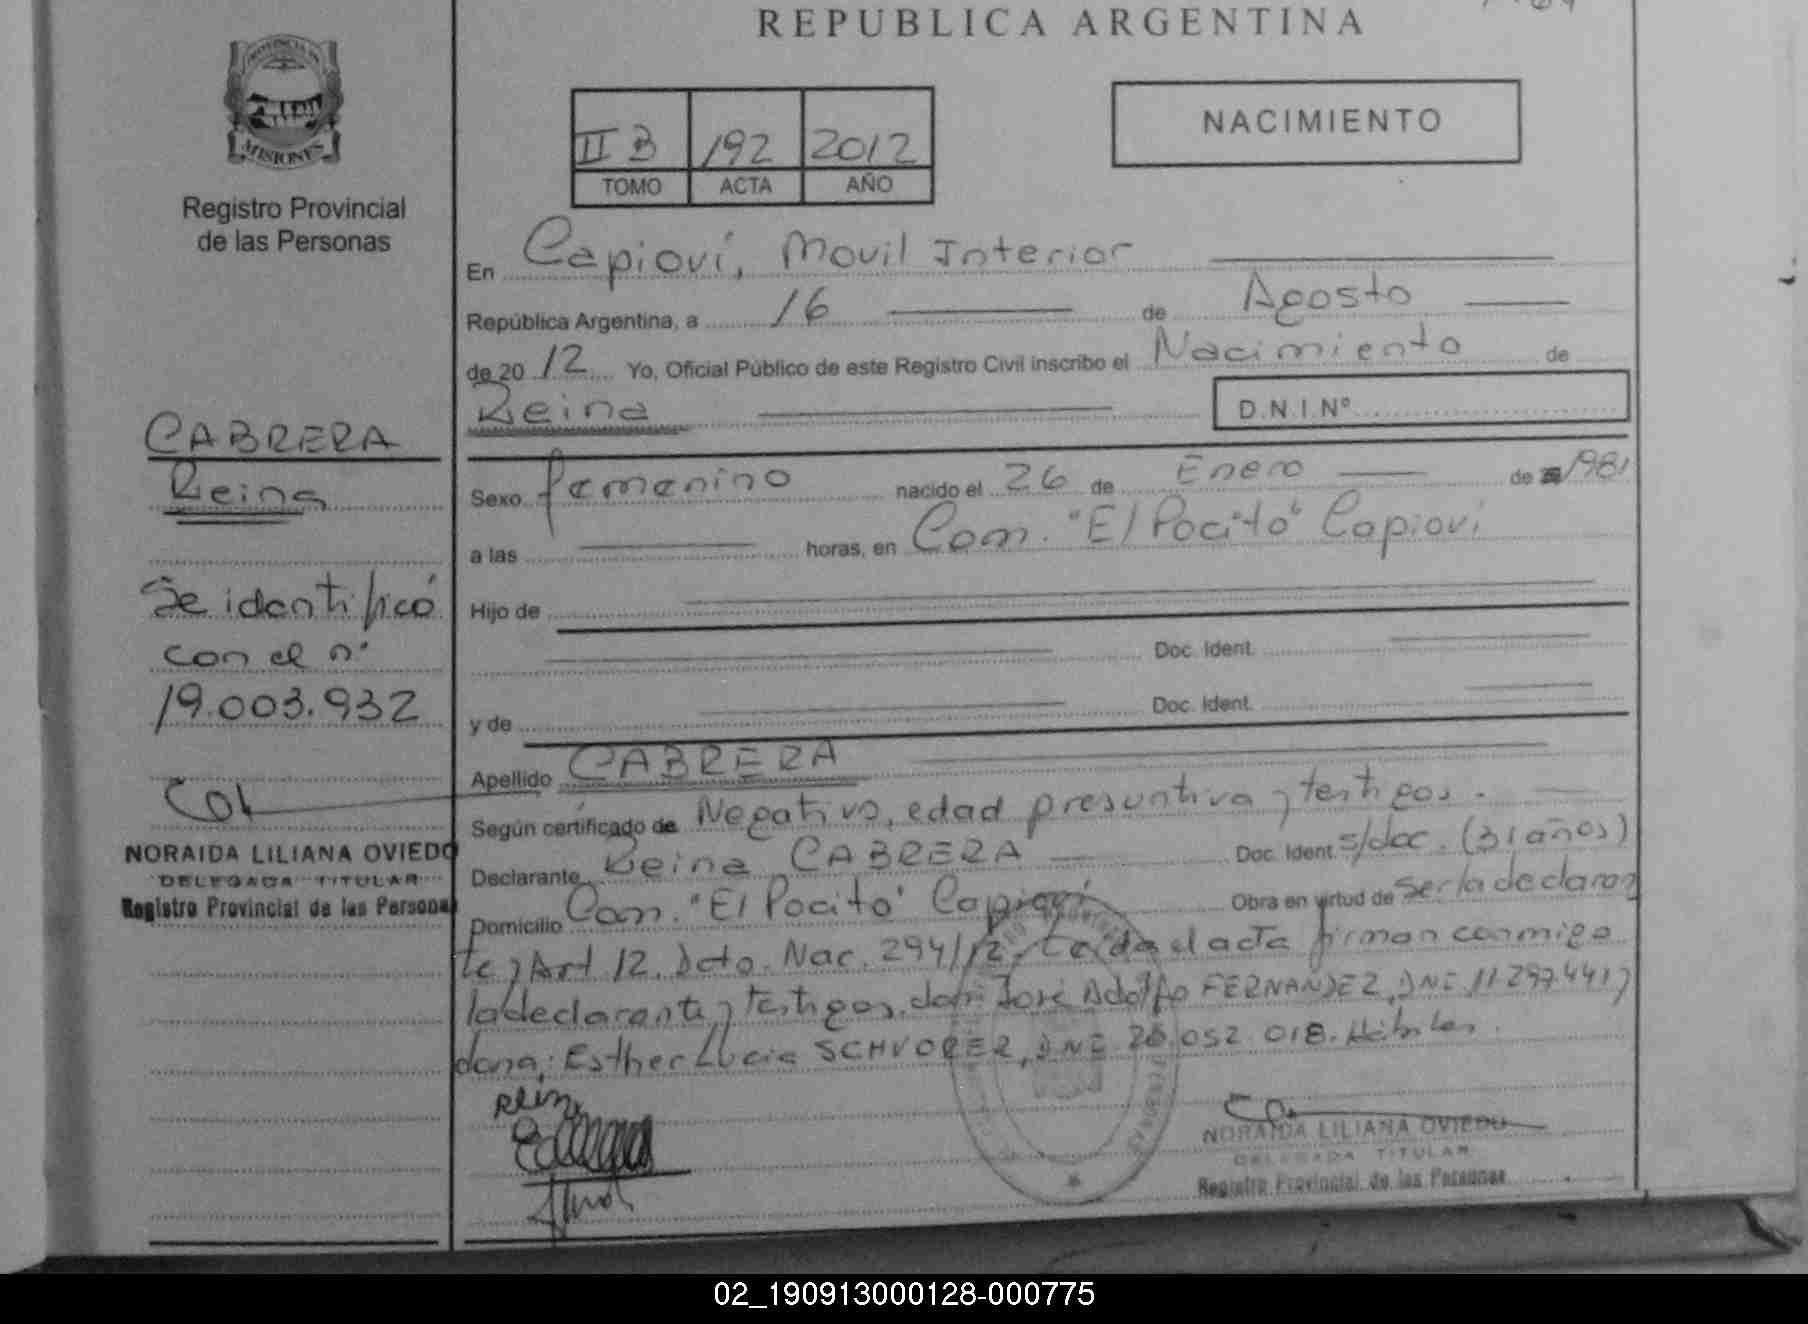 REPUBLICA ARGENTINA
PROVINCIA DE
MISIONES
Registro Provincial
de las Personas
II B 192 2012
TOMO ACTA AÑO
NACIMIENTO
En Capioví, Movil Interior
República Argentina, a 16 de Agosto
de 2012 Yo, Oficial Público de este Registro Civil inscribo el Nacimiento de
Reina
D.N.I.Nº
CABRERA
Reina
Se identificó
con el nº
19.003.932
NORAIDA LILIANA OVIEDO
DELEGADA TITULAR
Registro Provincial de las Personas
Sexo femenino nacido el 26 de Enero de 1981
a las horas, en Com. "El Pocito" Capioví
Hijo de
Doc. Ident.
y de Doc. Ident.
Apellido CABRERA
Según certificado de Negativo, edad presuntiva y testigos.
Declarante Reina CABRERA Doc. Ident. s/doc. (31 años)
Domicilio Com. "El Pocito" Capioví Obra en virtud de ser la declaran
te y Art 12. Dcto. Nac. 294/12, Leída el acta firman conmigo
la declarante y testigos, don: José Adolfo FERNANDEZ, DNI 11.297.441 y
dona: Esther Lucia SCHVORER, DNI 26.052.018. Hábiles.
Reina
NORAIDA LILIANA OVIEDO
DELEGADA TITULAR
Registro Provincial de las Personas
02_190913000128-000775